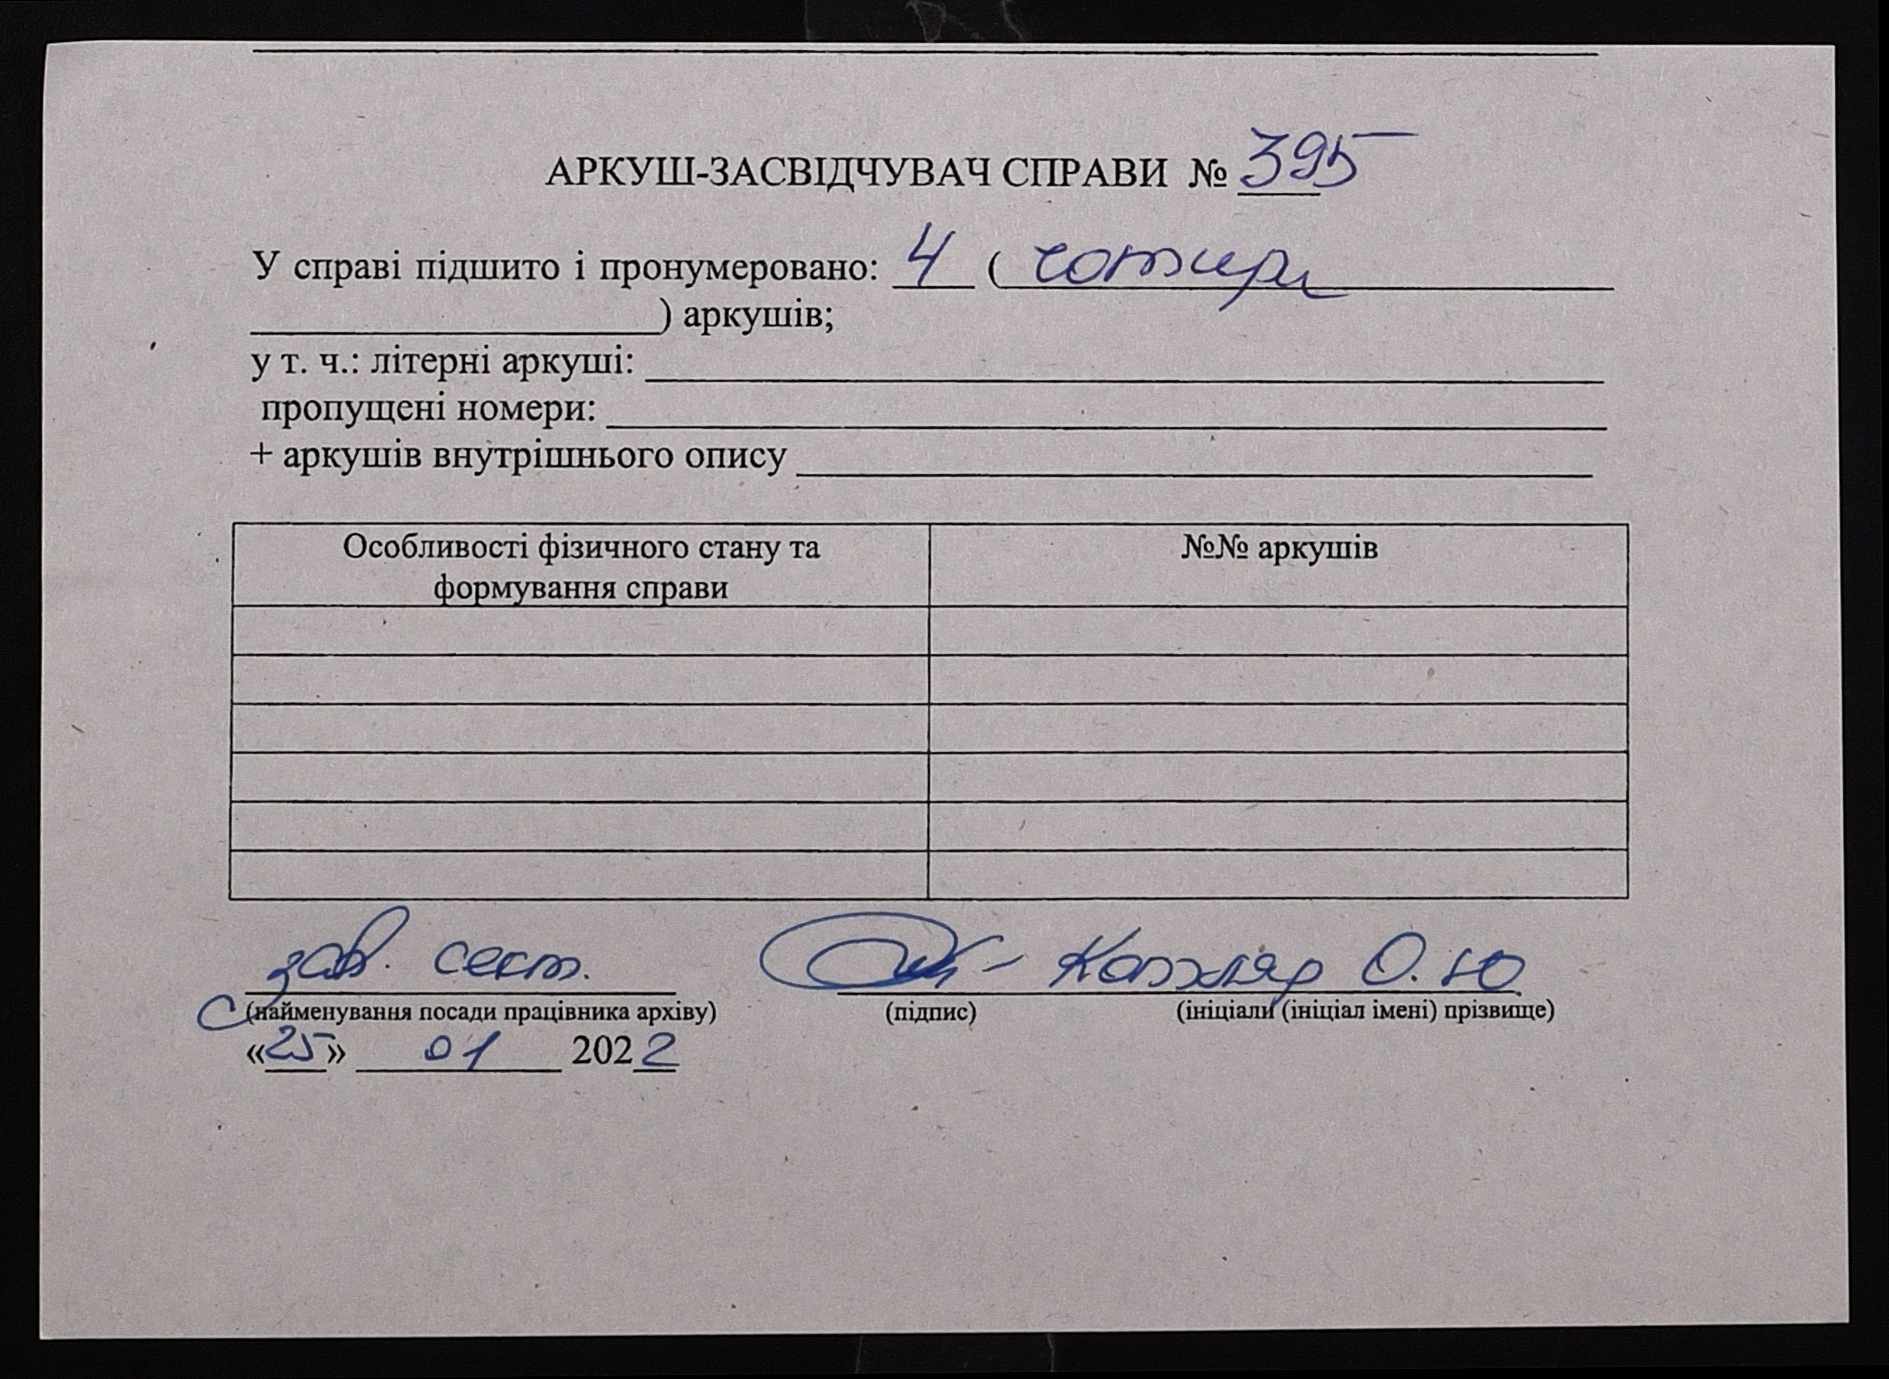 АРКУШ-ЗАСВІДЧУВАЧ СПРАВИ № 395
У справі підшито і пронумеровано: 4 ( чотири
) аркушів;
у т. ч.: літерні аркуші:
пропущені номери:
+ аркушів внутрішнього опису
Особливості фізичного стану та формування справи
№№ аркушів
зав. сект. О. Ю
(найменування посади працівника архіву) (підпис) (ініціали (ініціал імені) прізвище)
«25» 01 2022